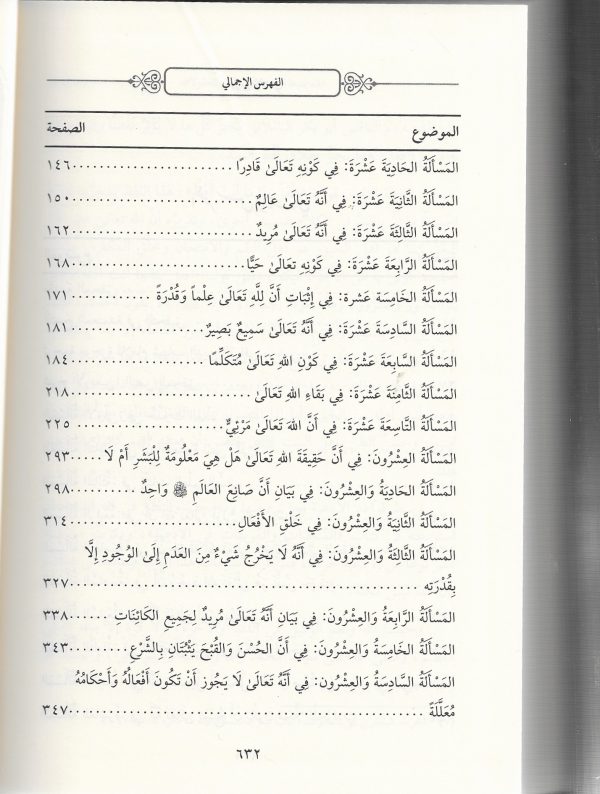 الفهرس الإجمالي
الموضوع الصفحة
المَسْأَلَةُ الحَادِيَةَ عَشْرَةَ: فِي كَوْنِهِ تَعَالَىٰ قَادِرًا ........................ ١٤٦
المَسْأَلَةُ الثَّانِيَةَ عَشْرَةَ: فِي أَنَّهُ تَعَالَىٰ عَالِمٌ ........................ ١٥٠
المَسْأَلَةُ الثَّالِثَةَ عَشْرَةَ: فِي أَنَّهُ تَعَالَىٰ مُرِيدٌ ........................ ١٦٢
المَسْأَلَةُ الرَّابِعَةَ عَشْرَةَ: فِي كَوْنِهِ تعَالَىٰ حَيًّا ........................ ١٦٨
المَسْأَلَةُ الخَامِسَةَ عَشرة: فِي إِثْبَاتِ أَنَّ لِلَّهِ تَعَالَىٰ عِلْماً وَقُدْرَةً ............ ١٧١
المَسْأَلَةُ السَّادِسَةَ عَشْرَةَ: فِي أَنَّهُ تَعَالَىٰ سَمِيعٌ بَصِيرٌ .................. ١٨١
المَسْأَلَةُ السَّابِعَةَ عَشْرَةَ: فِي كَوْنِ اللهِ تَعَالَىٰ مُتَكَلِّمًا .................. ١٨٤
المَسْأَلَةُ الثَّامِنَةَ عَشْرَةَ: فِي بَقَاءِ اللهِ تَعَالَىٰ ........................ ٢١٨
المَسْأَلَةُ التَّاسِعَةَ عَشْرَةَ: فِي أَنَّ اللهَ تَعَالَىٰ مَرْئِيٌّ ..................... ٢٢٥
المَسْأَلَةُ العِشْرُونَ: فِي أَنَّ حَقِيقَةَ اللهِ تَعَالَىٰ هَلْ هِيَ مَعْلُومَةٌ لِلْبَشَرِ أَمْ لَا ..... ٢٩٣
المَسْأَلَةُ الحَادِيَةُ وَالعِشْرُونَ: فِي بَيَانِ أَنَّ صَانِعَ العَالَمِ ﷻ وَاحِدٌ .......... ٢٩٨
المَسْأَلَةُ الثَّانِيَةُ وَالعِشْرُونَ: فِي خَلْقِ الأَفْعَالِ ........................ ٣١٤
المَسْأَلَةُ الثَّالِثَةُ وَالعِشْرُونَ: فِي أَنَّهُ لَا يَخْرُجُ شَيْءٌ مِنَ العَدَمِ إِلَىٰ الوُجُودِ إِلَّا
بِقُدْرَتِهِ .......................................... ٣٢٧
المَسْأَلَةُ الرَّابِعَةُ وَالعِشْرُونَ: فِي بَيَانِ أَنَّهُ تَعَالَىٰ مُرِيدٌ لِجَمِيعِ الكَائِنَاتِ ...... ٣٣٨
المَسْأَلَةُ الخَامِسَةُ وَالعِشْرُونَ: فِي أَنَّ الحُسْنَ وَالقُبْحَ يَثْبُتَانِ بِالشَّرْعِ ......... ٣٤٣
المَسْأَلَةُ السَّادِسَةُ وَالعِشْرُون: فِي أَنَّهُ تَعَالَىٰ لَا يَجُوز أَنْ تَكُونَ أَفْعَالُهُ وَأَحْكَامُهُ
مُعَلَّلَةً .......................................... ٣٤٧
٦٣٢